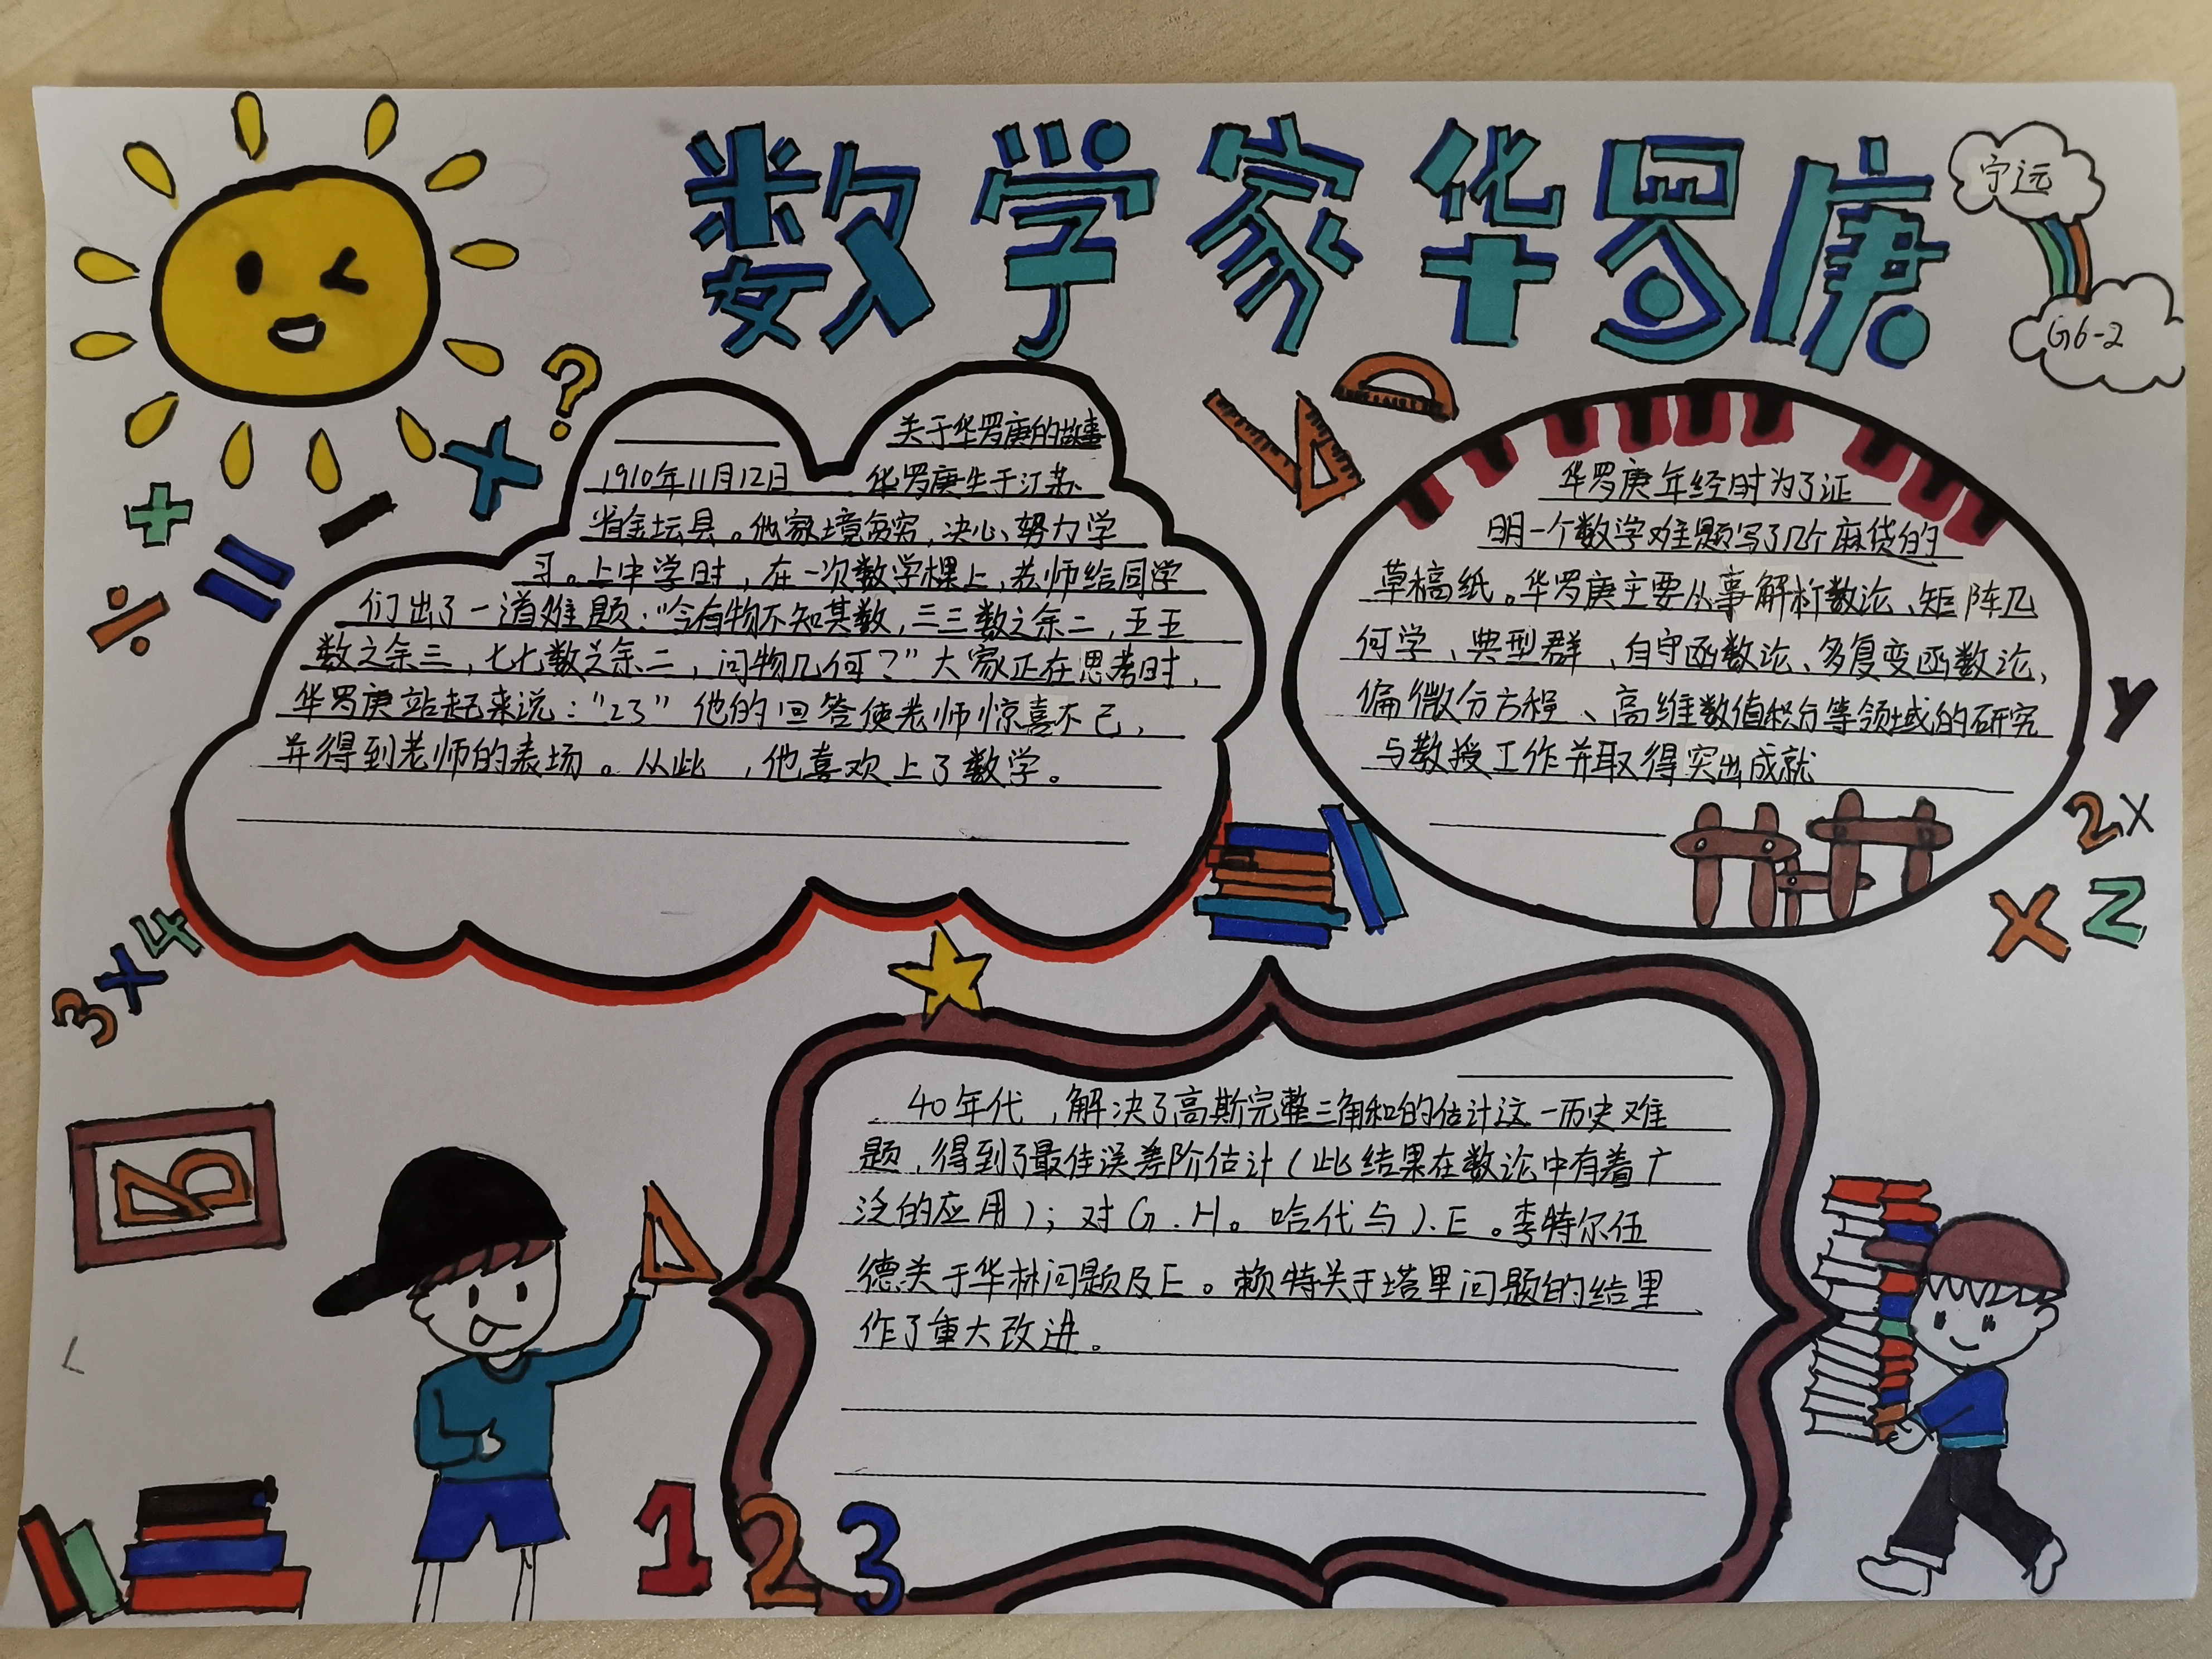 数学家华罗庚
宁远
G6-2
关于华罗庚的故事
1910年11月12日 华罗庚生于江苏
省金坛县。他家境贫穷,决心努力学
习。上中学时,在一次数学棵上,老师给同学
们出了一道难题:“今有物不知其数,三三数之余二,五五
数之余三,七七数之余二,问物几何?”大家正在思考时,
华罗庚站起来说:“23”他的回答使老师惊喜不已,
并得到老师的表场。从此,他喜欢上了数学。
华罗庚年经时为了证
明一个数学难题写了几个麻贷的
草稿纸。华罗庚主要从事解析数论、矩阵几
何学、典型群、自守函数论、多复变函数论、
偏微分方程、高维数值积分等领域的研究
与教授工作并取得突出成就
40年代,解决了高斯完整三角和的估计这一历史难
题,得到了最佳误差阶估计(此结果在数论中有着广
泛的应用);对G.H。哈代与J.E。李特尔伍
德关于华林问题及E。赖特关于塔里问题的结果
作了重大改进。
?
+ = - ×
÷
3×4
y
2x
x z
1 2 3